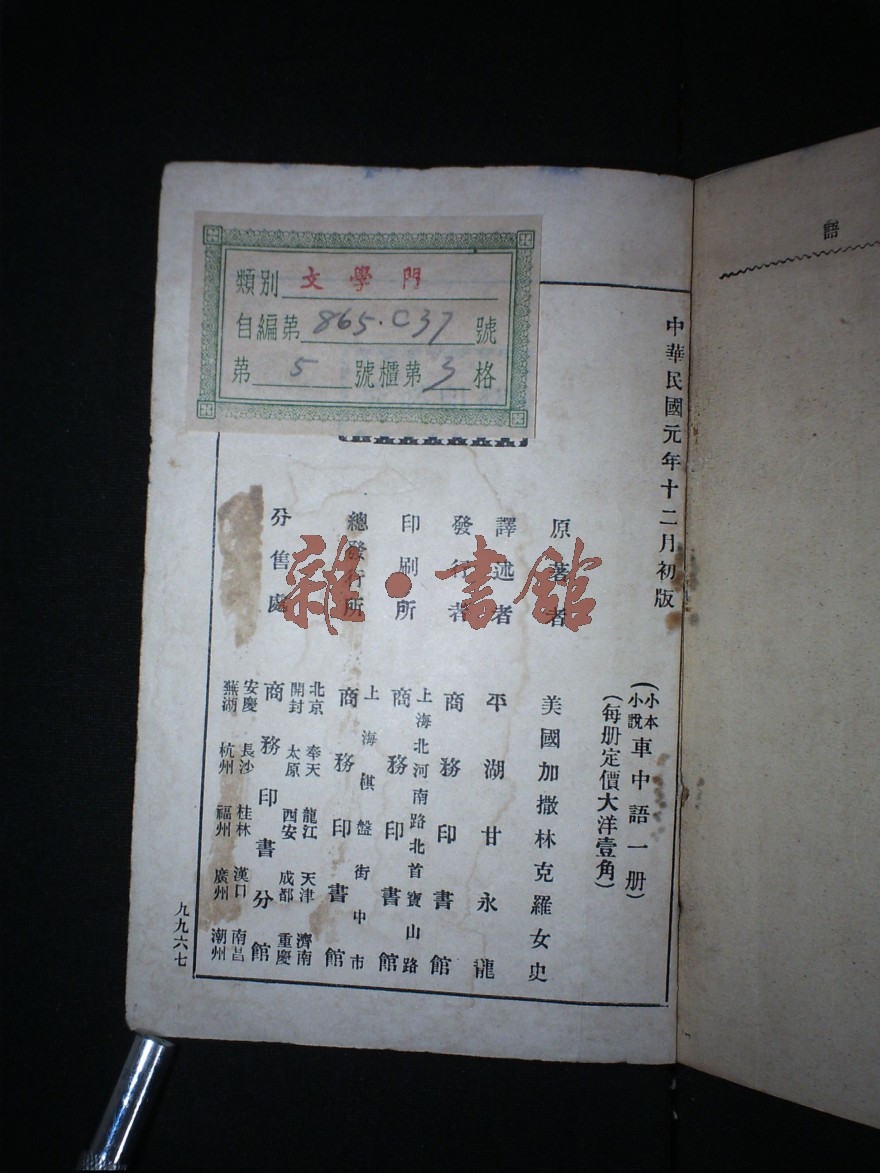 語
類別 文學門
自編第 865.C37 號
第 5 號櫃第 3 格
中華民國元年十二月初版
(小本小說 車中語一册)
(每册定價大洋壹角)
原著者 美國加撒林克羅女史
譯述者 平湖甘永龍
發行者 商務印書館
印刷所 上海北河南路北首寶山路
商務印書館
總發行所 上海棋盤街中市
商務印書館
分售處 北京 奉天 龍江 天津 濟南
開封 太原 西安 成都 重慶
商務印書分館
安慶 長沙 桂林 漢口 南昌
蕪湖 杭州 福州 廣州 潮州
九九六七
雜·書館